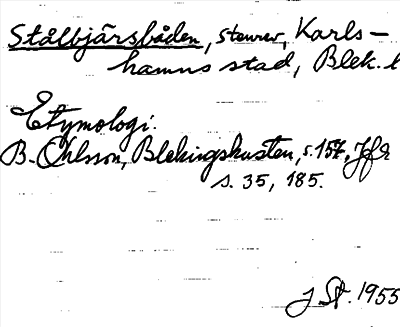 Stålbjärsbåden, stenrev, Karls-
hamns stad, Blek. l
Etymologi.
B. Ohlsson, Blekingskusten, s. 157, Jfr
s. 35, 185.
J St. 1955